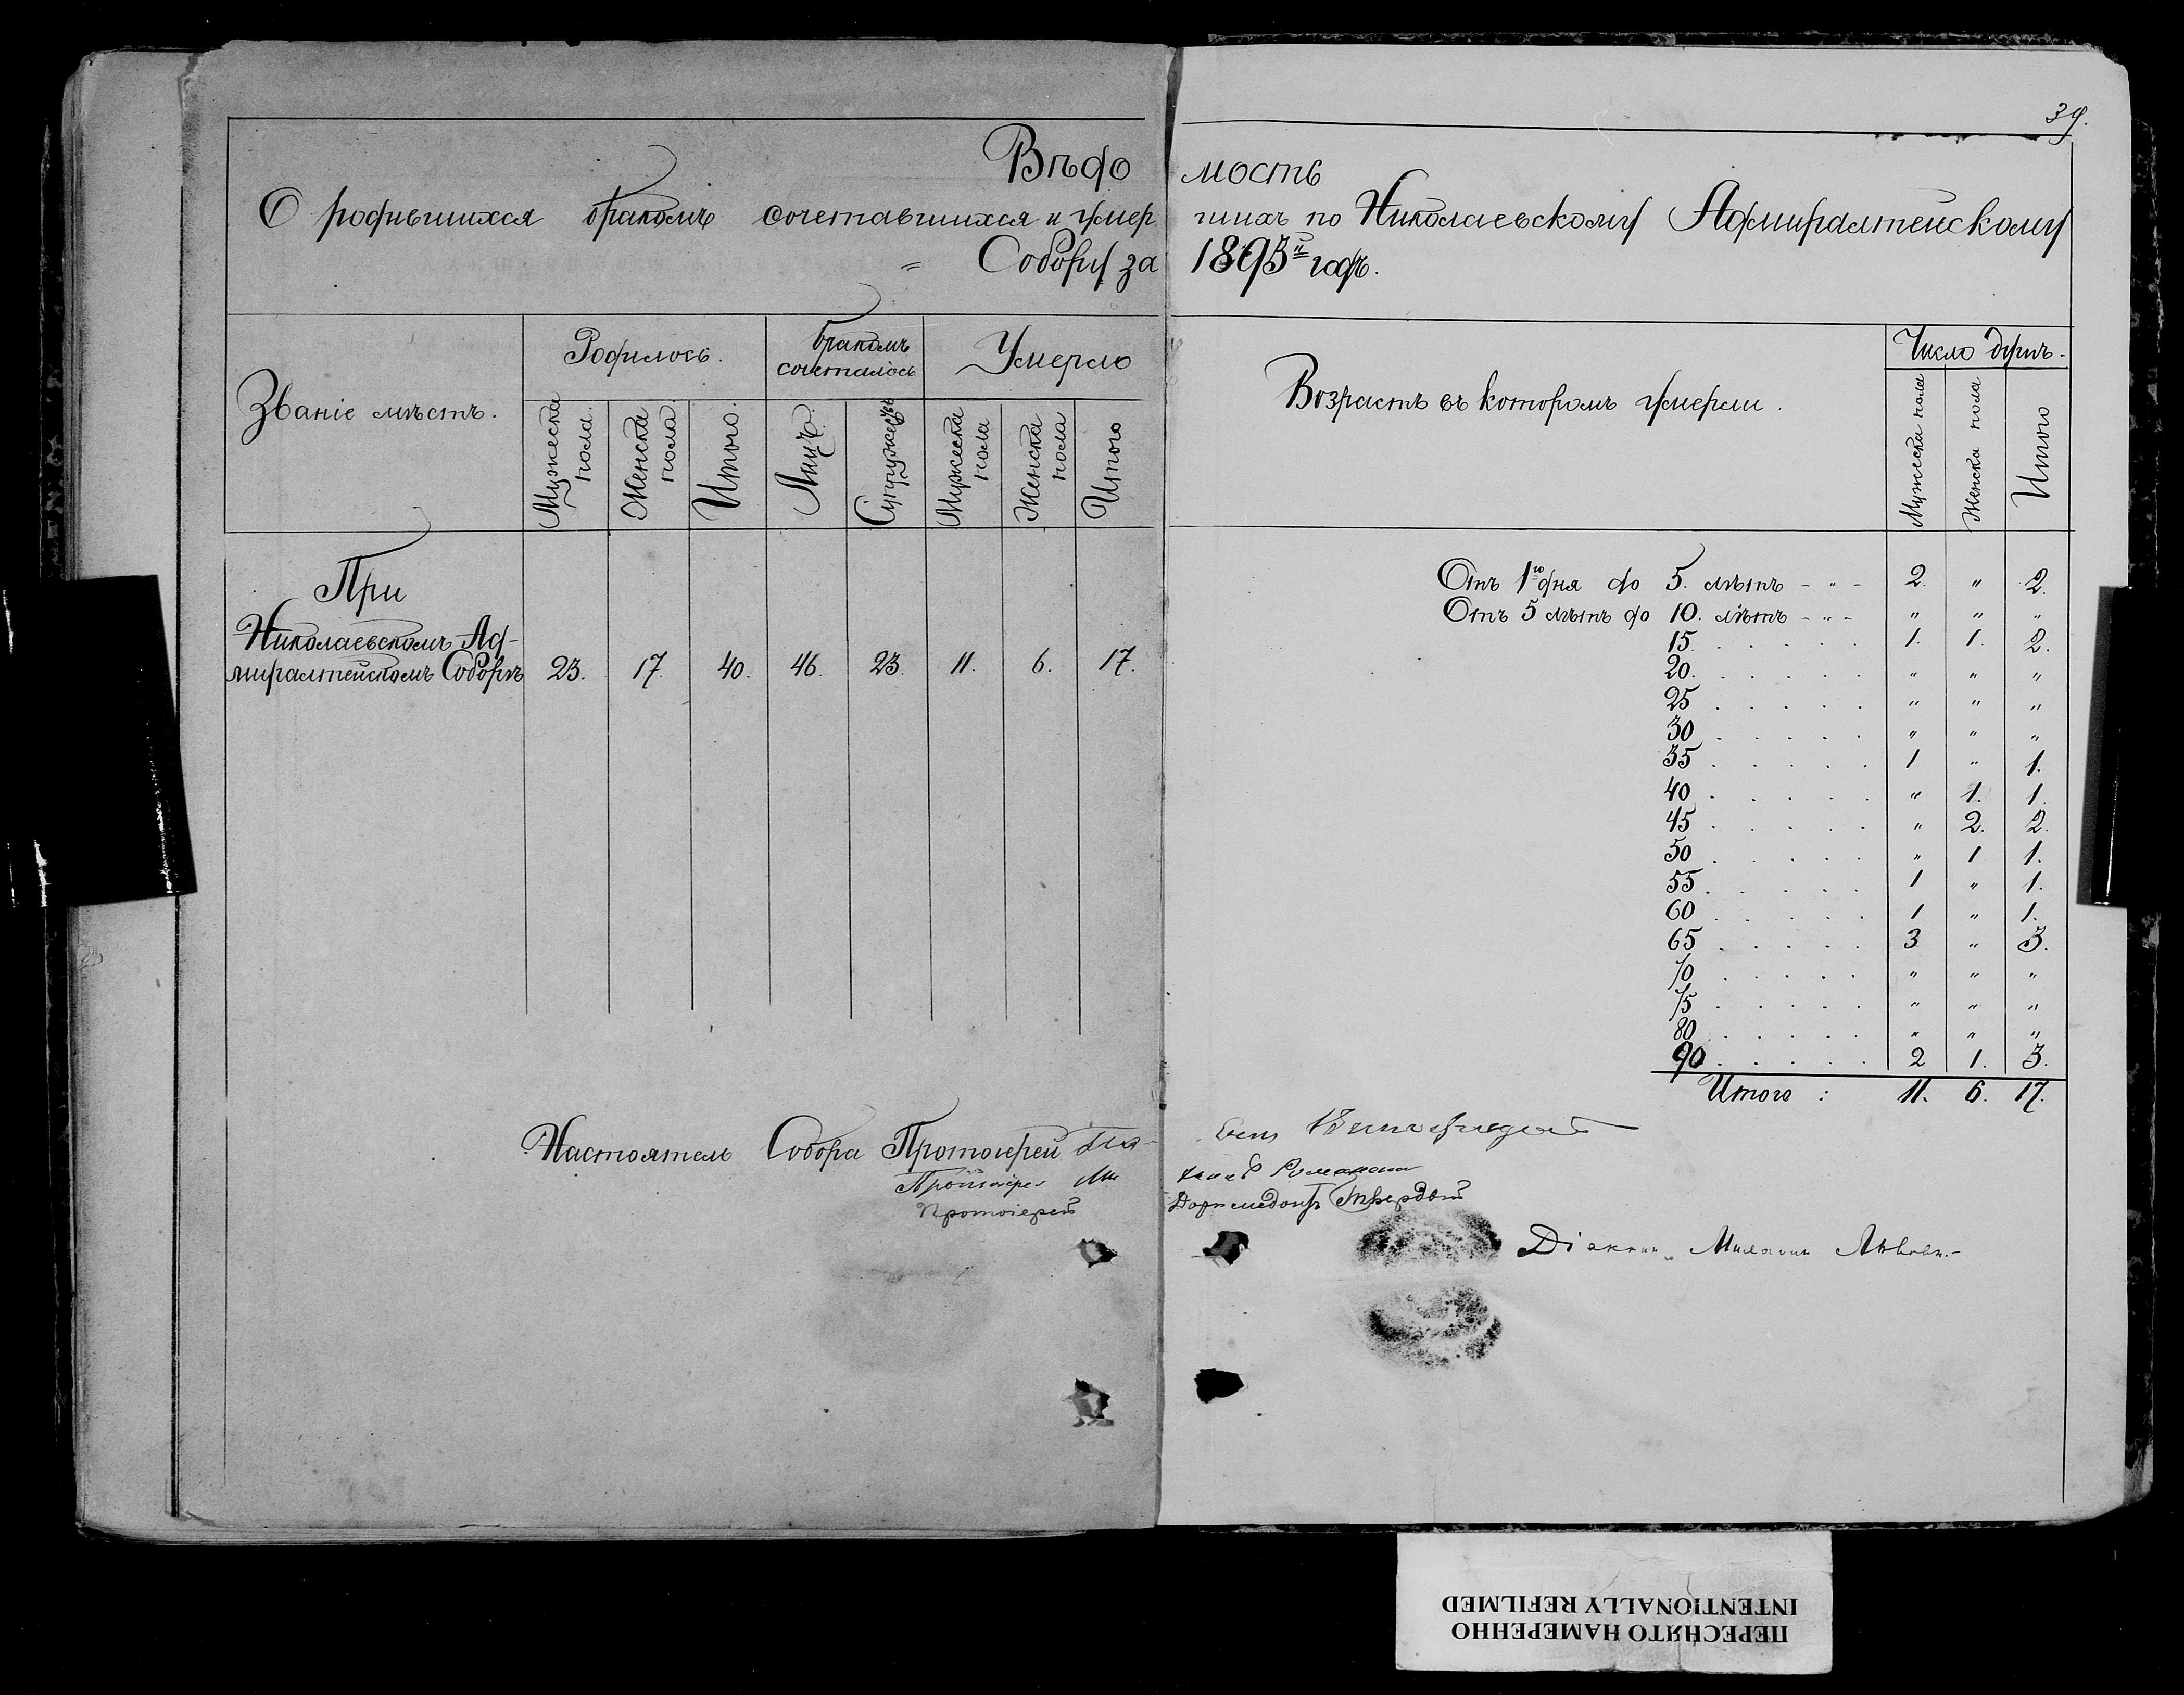 39.
Вѣдомость
О родившихся бракомъ сочетавшихся и умершихъ по Николаевскому Адмиралтейскому
Собору за 1893й годъ.
Званіе мѣстъ.
Родилось.
Бракомъ
сочеталось
Умерло
Мужеска пола.
Женска пола
Итого.
Лицъ.
Супружествъ
Мужеска пола
Женска пола
Итого
Возрастъ въ которомъ умерли.
Число душъ.
Мужеска пола
Женска пола
Итого
При
Николаевскомъ Ад-
миралтейскомъ Соборѣ 23. 17. 40. 46. 23. 11. 6. 17.
Отъ 1го дня до 5. лѣтъ - " - 2. " 2.
Отъ 5 лѣтъ до 10. лѣтъ - " - " " "
15. . . . . . 1. 1. 2.
20. . . . . . " " "
25 . . . . . " " "
30 . . . . . " " "
35 . . . . . 1 " 1.
40 . . . . . " 1. 1.
45 . . . . . " 2. 2.
50 . . . . . " 1 1.
55 . . . . . 1 " 1.
60 . . . . . 1 " 1.
65 . . . . . 3 " 3.
70 . . . . . " " "
75 . . . . . " " "
80 . . . . . " " "
90 . . . . . 2 1. 3.
Итого : 11. 6. 17.
Настоятель Собора Протоіерей
Протоіерей
Протоіерей Доримедонтъ Твердый
Діаконъ
ПЕРЕСНЯТО НАМЕРЕННО
INTENTIONALLY REFILMED